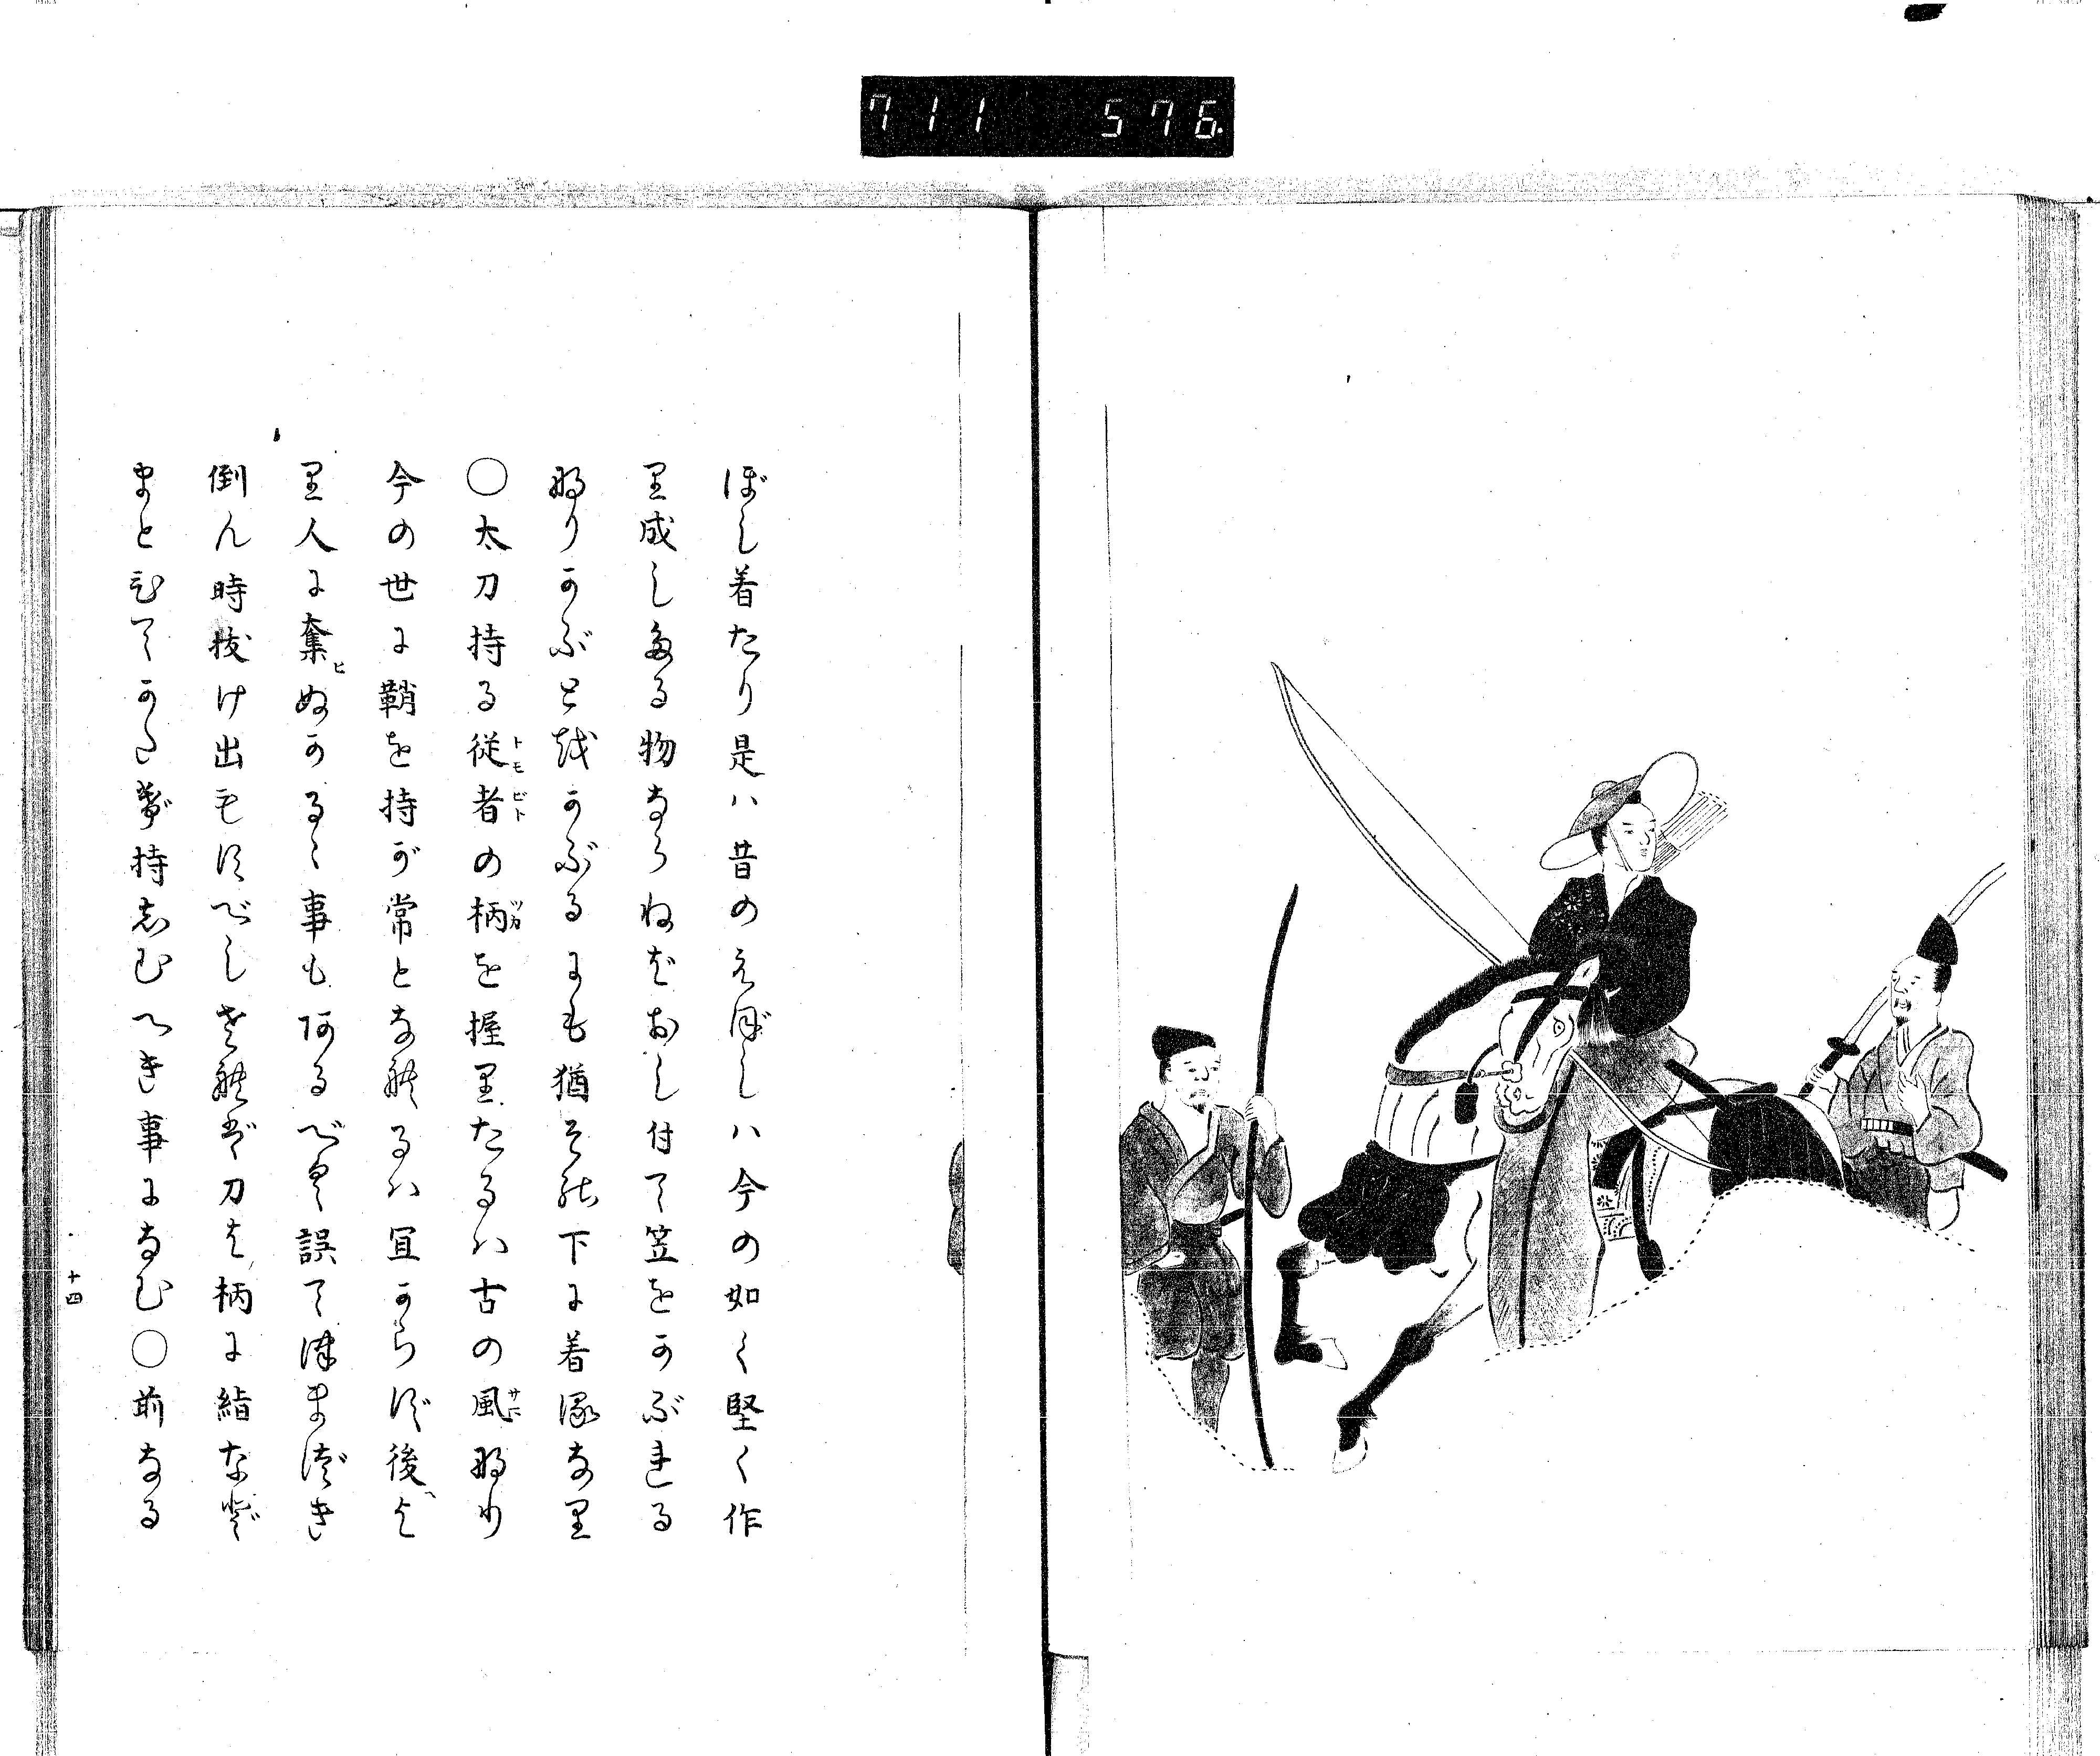 711 576.
ぼし着たり是ハ昔のえぼしハ今の如く堅く作
里成したる物ならねばおし付て笠をかぶれる
那りかぶと越かぶるにも猶それ下に着る なり
〇太刀持る従者の柄を握里たるハ古の風那り
トモビト
ツカ
サマ
今の世に鞘を持が常となれるハ宜からず後よ
里人に奪ぬかるゝ事も阿るべく誤て つまづき
ヒ
倒ん時抜け出もすべしされば刀を柄に結など
まとひてかたぎ持志むへき事になむ〇前なる
十四